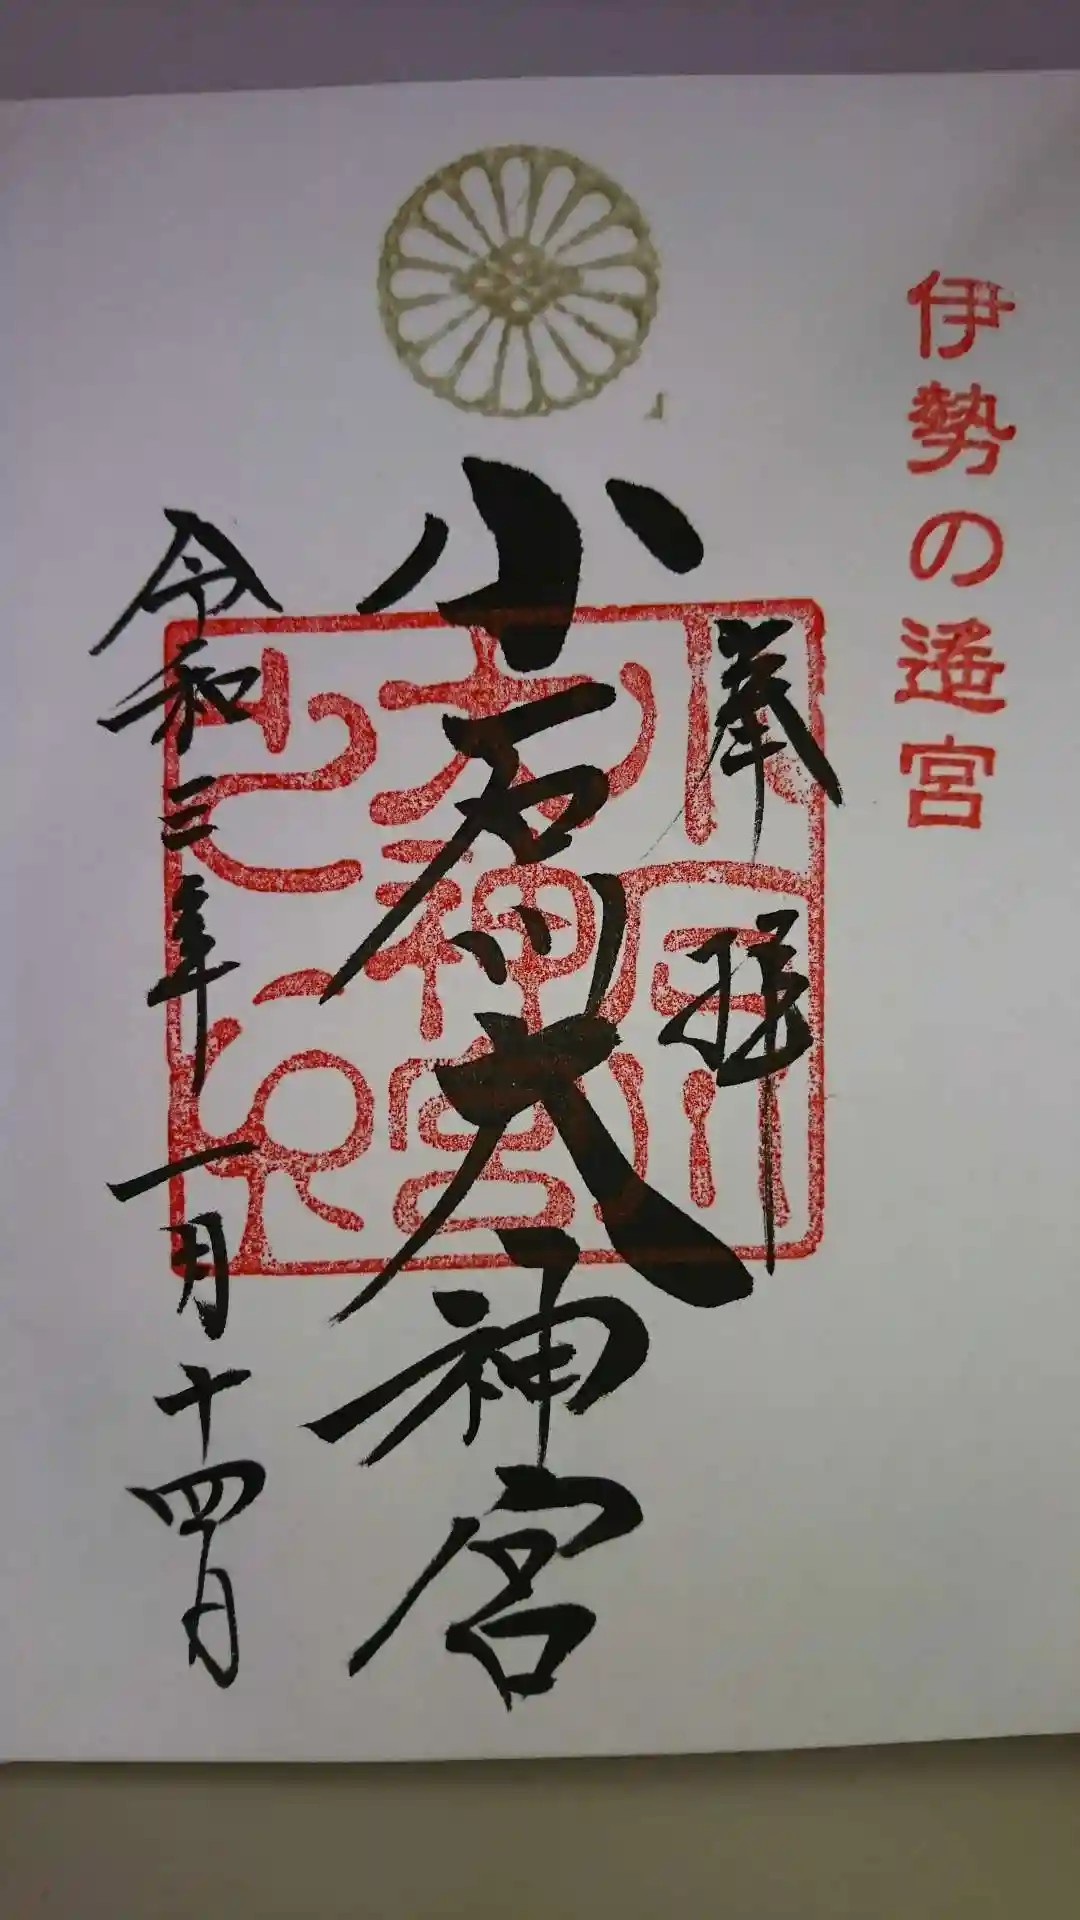 伊勢の遥宮
奉拝
小石川大神宮
小石川大神宮之印
令和三年一月十四日